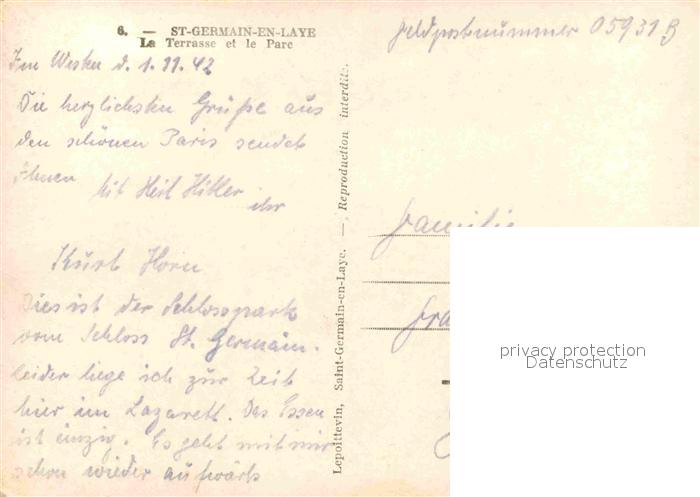 6. — ST-GERMAIN-EN-LAYE
La Terrasse et le Parc
Im Westen d. 1.11.42
Die herzlichsten Grüße aus
den schönen Paris sendet
Ihnen
Mit Heil Hitler
ihr
Kurt Horn
Dies ist der Schlosspark
vom Schloss St. Germain.
leider liege ich zur Zeit
hier im Lazarett. Das Essen
ist einzig. Es geht mit mir
schon wieder aufwärts
Lepoittevin, Saint-Germain-en-Laye. — Reproduction interdite.
Feldpostnummer 05931B
Familie
privacy protection
Datenschutz